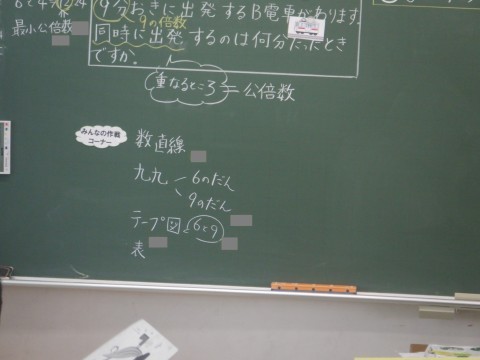 最小公倍数
9分おきに出発するB電車があります。
9の倍数
同時に出発するのは何分たったとき
ですか。
重なるところ＝公倍数
みんなの作戦
コーナー
数直線
九九
6のだん
9のだん
テープ図 6と9
表